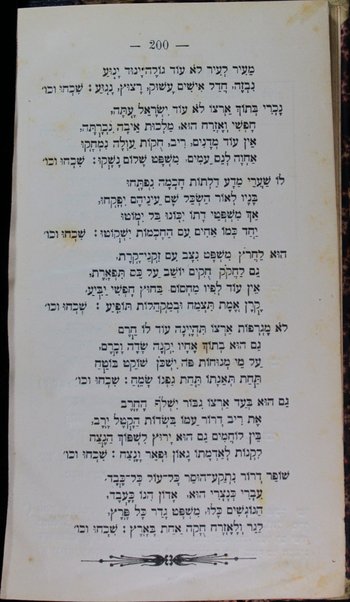 — 200 —
מֵעִיר לָעִיר לֹא עוֹד גּוֹלֶה יָנוּד יָנוּעַ
נִבְזֶה, חֲדַל אִישִׁים עָשׁוּק, רָצוּץ, נָגוּעַ: שִׁכְחוּ וכו'
נָכְרִי בְּתוֹךְ אַרְצוֹ לֹא עוֹד יִשְׂרָאֵל עַתָּה,
חָפְשִׁי וְאֶזְרָח הוּא, מַלְכוּת אֵיבָה נִכְרָתָה,
אֵין עוֹד מְדָנִים, רִיב, חֻקּוֹת עַוְלָה נִמְחָקוּ
אַחֲוָה לְגַם עַמִּים. מִשְׁפָּט שָׁלוֹם נָשָׁקוּ: שִׁכְחוּ וכו'
לוֹ שַׁעֲרֵי מַדָּע דַּלְתוֹת חָכְמָה נִפְתָּחוּ
בָּנָיו לְאוֹר הַשֵּׂכֶל שָׁם עֵינֵיהֶם יִפְקָחוּ,
אַךְ מִשְׁפְּטֵי דָתוֹ יִכּוֹנוּ בַּל יִמּוֹטוּ
יַחַד כְּמוֹ אַחִים עִם הַחָכְמוֹת יִשְׁקוֹטוּ: שִׁכְחוּ וכו'
הוּא לַחֲרֹץ מִשְׁפָּט נִצָּב עִם זִקְנֵי־קָרֶת,
גַּם לַחֲקֹק חֻקִּים יוֹשֵׁב עַל כֵּס תִּפְאָרֶת,
אֵין עוֹד לְפִיו מַחְסוֹם. בַּחוּץ חָפְשִׁי יַבִּיעַ,
קֶרֶן אֱמֶת תִּצְמַח וּבְמַקְהֵלוֹת תּוֹפִיעַ: שִׁכְחוּ וכו'
לֹא מֶגְרְפוֹת אַרְצוֹ תִּהְיֶינָה עוֹד לוֹ חֵרֶם
גַּם הוּא בְּתוֹךְ אֶחָיו יִקְנֶה שָׂדֶה וָכֶרֶם,
עַל מֵי מְנוּחוֹת פֹּה יִשְׁכֹּן שׁוֹקֵט בּוֹטֵחַ
תַּחַת תְּאֵנָתוֹ תַּחַת גַּפְנוֹ שָׂמֵחַ: שִׁכְחוּ וכו'
גַּם הוּא בְּעַד אַרְצוֹ גִּבּוֹר יִשְׁלֹף הַחֶרֶב
אֶת רִיב דְּרוֹר עַמּוֹ בִּשְׂדוֹת הַקֶּטֶל יָרֶב,
בֵּין לוֹחֲמִים גַּם הוּא יָרוּץ לִשְׁפּוֹךְ הַנֵּצַח
לִקְנוֹת לְאַדְמָתוֹ גָּאוֹן וּפְאֵר וָנֶצַח: שִׁכְחוּ וכו'
שׁוֹפַר דְּרוֹר נִתְקַע־הוּסַר כָּל־עוֹל כָּל־כָּבֶד,
עִבְרִי כְּנָצְרִי הוּא. אָדוֹן הִנּוֹ כָּעָבֶד,
הַנּוֹגְשִׂים כָּלוּ, מִשְׁפָּט גָּדַר כָּל פֶּרֶץ,
לַגֵּר וְלָאֶזְרָח חֻקָּה אַחַת בָּאָרֶץ: שִׁכְחוּ וכו'